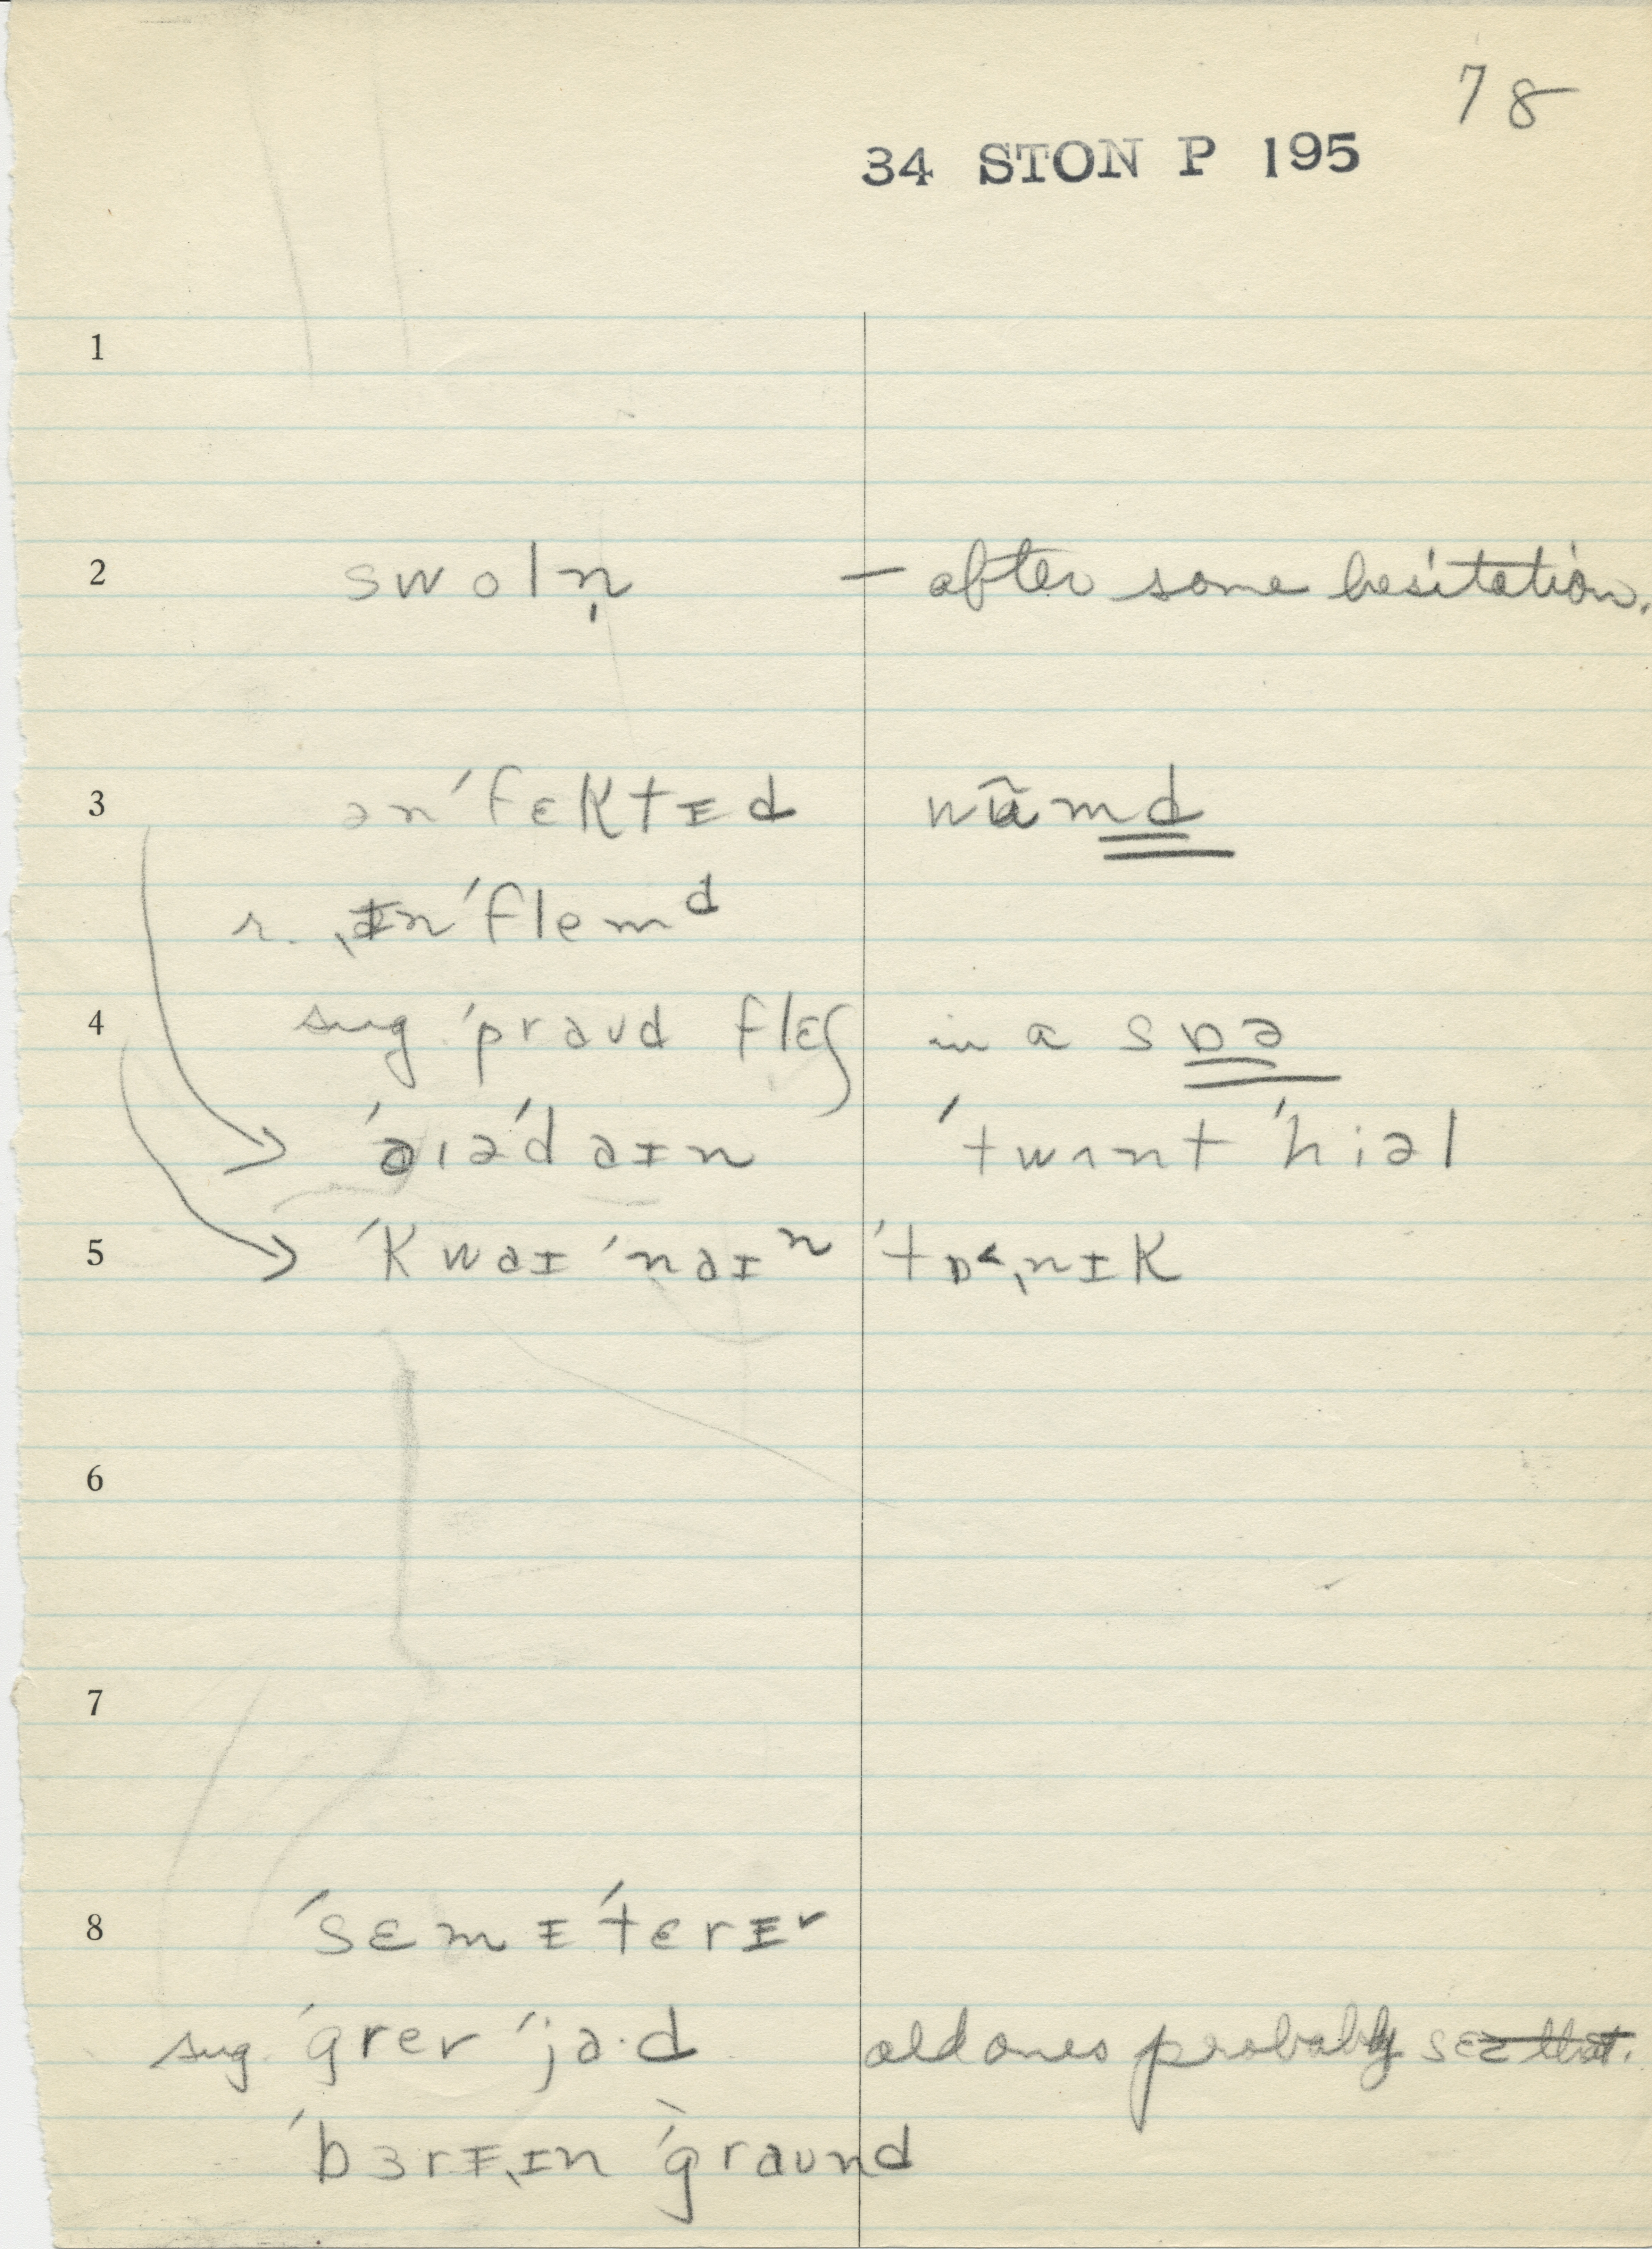 78
34 STON P 195
1
2 swoln̩ — after some hesitation.
3 ən'fɛktɪd wũmd
r. ˌɪn'flemᵈ
4 sug. 'praʊd flɛʃ in a sɒə
'aɪə'daɪn 'twɪnt 'hiəl
5 'kwaɪ'naɪⁿ 'tɒ˂ˌnɪk
6
7
8 'sɛmɪ'tɛrɪʳ
sug. 'grev 'ja·d old ones probably sɛz that.
'bɜrɪˌɪn 'graʊnd